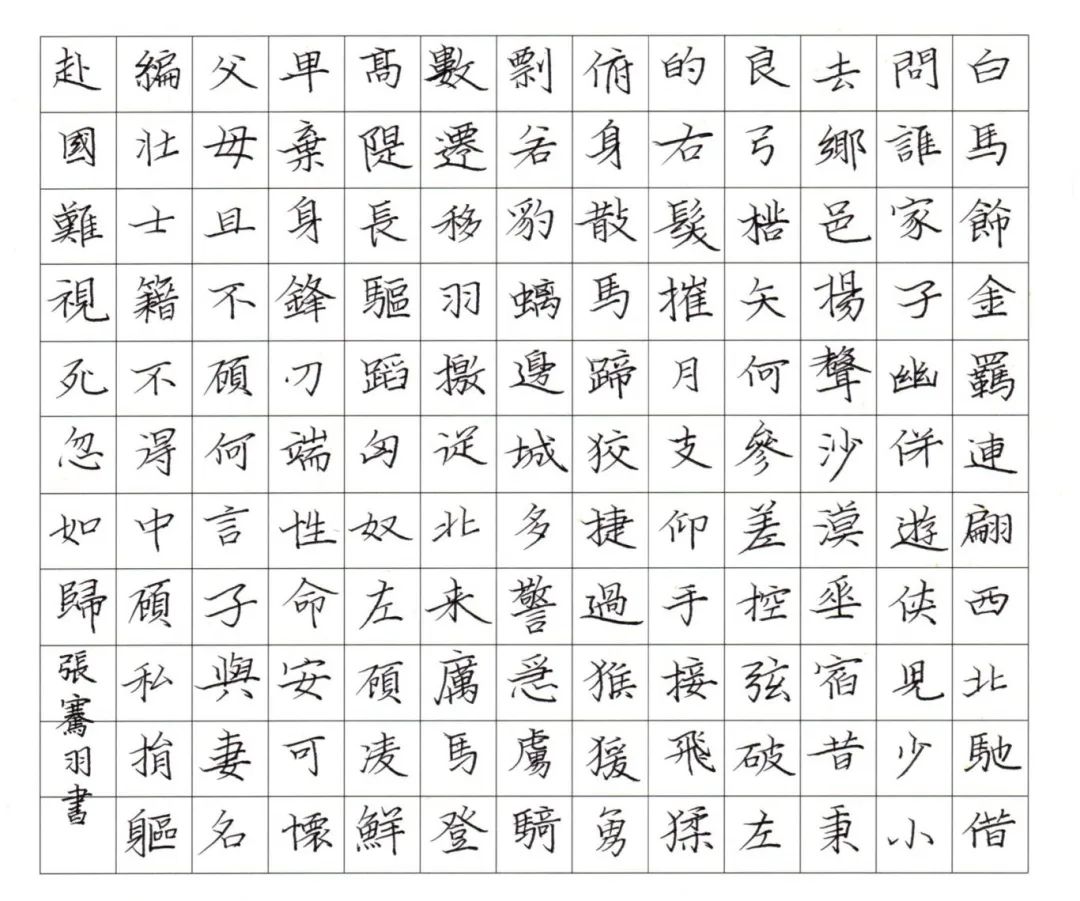 白馬飾金羈連翩西北馳借
問誰家子幽併遊俠見少小
去鄉邑揚聲沙漠垂宿昔秉
良弓楛矢何參差控弦破左
的右髮摧月支仰手接飛猱
俯身散馬蹄狡捷過猴猨勇
剽若豹螭邊城多警急虜騎
數遷移羽檄從北来厲馬登
高隄長驅蹈匈奴左顧凌鮮
卑棄身鋒刃端性命安可懷
父母且不顧何言子與妻名
編壯士籍不得中顧私捐軀
赴國難視死忽如歸
張騫羽書